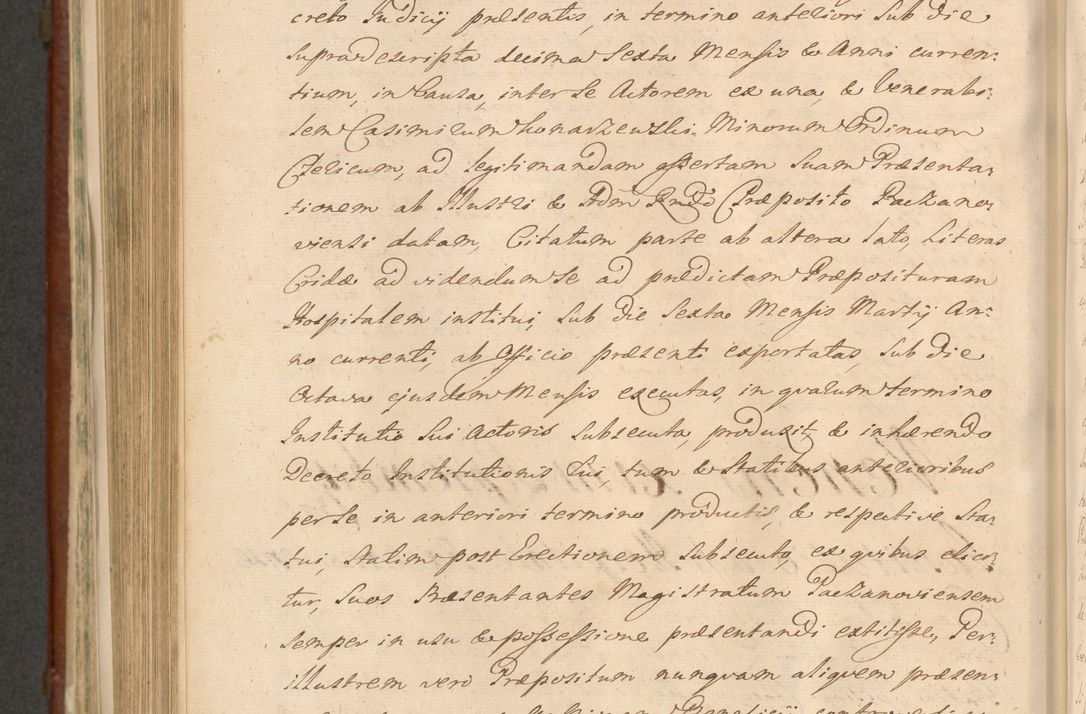 creto Iudicij præsentis, in termino anteriori Sub die
Supradescripta decima Sexta Mensis & Anni curren:
tium, in Causa, inter Se Actorem ex una, & Venerabi:
lem Casimirum Konarzewski, Minorum Ordinum
Clericum, ad legitimandam assertam Suam Præsenta:
tionem ab Illustri & Adm Rndo Præposito Paczano:
viensi datam, Citatum parte ab altera lato, Literas
Cridæ ad videndum Se ad prædictam Præposituram
Hospitalem institui, Sub die Sexta Mensis Martij An:
no currenti, ab Officio præsenti exportatas, Sub die
Octava ejusdem Mensis executas, in qvarum termino
Institutio Sui Actoris Subsecuta, produxit, & inhærendo
Decreto Institutionis Sui, tum & Statibus anterioribus
per Se in anteriori termino productis, & respective Sta:
tui, Statim post Erectionem Subsecuto, ex qvibus elice:
tur, Suos Præsentantes Magistratum Paczanoviensem
Semper in usu & possessione præsentandi extitisse, Per:
illustrem vero Præpositum nunqvam aliqvem præsen: